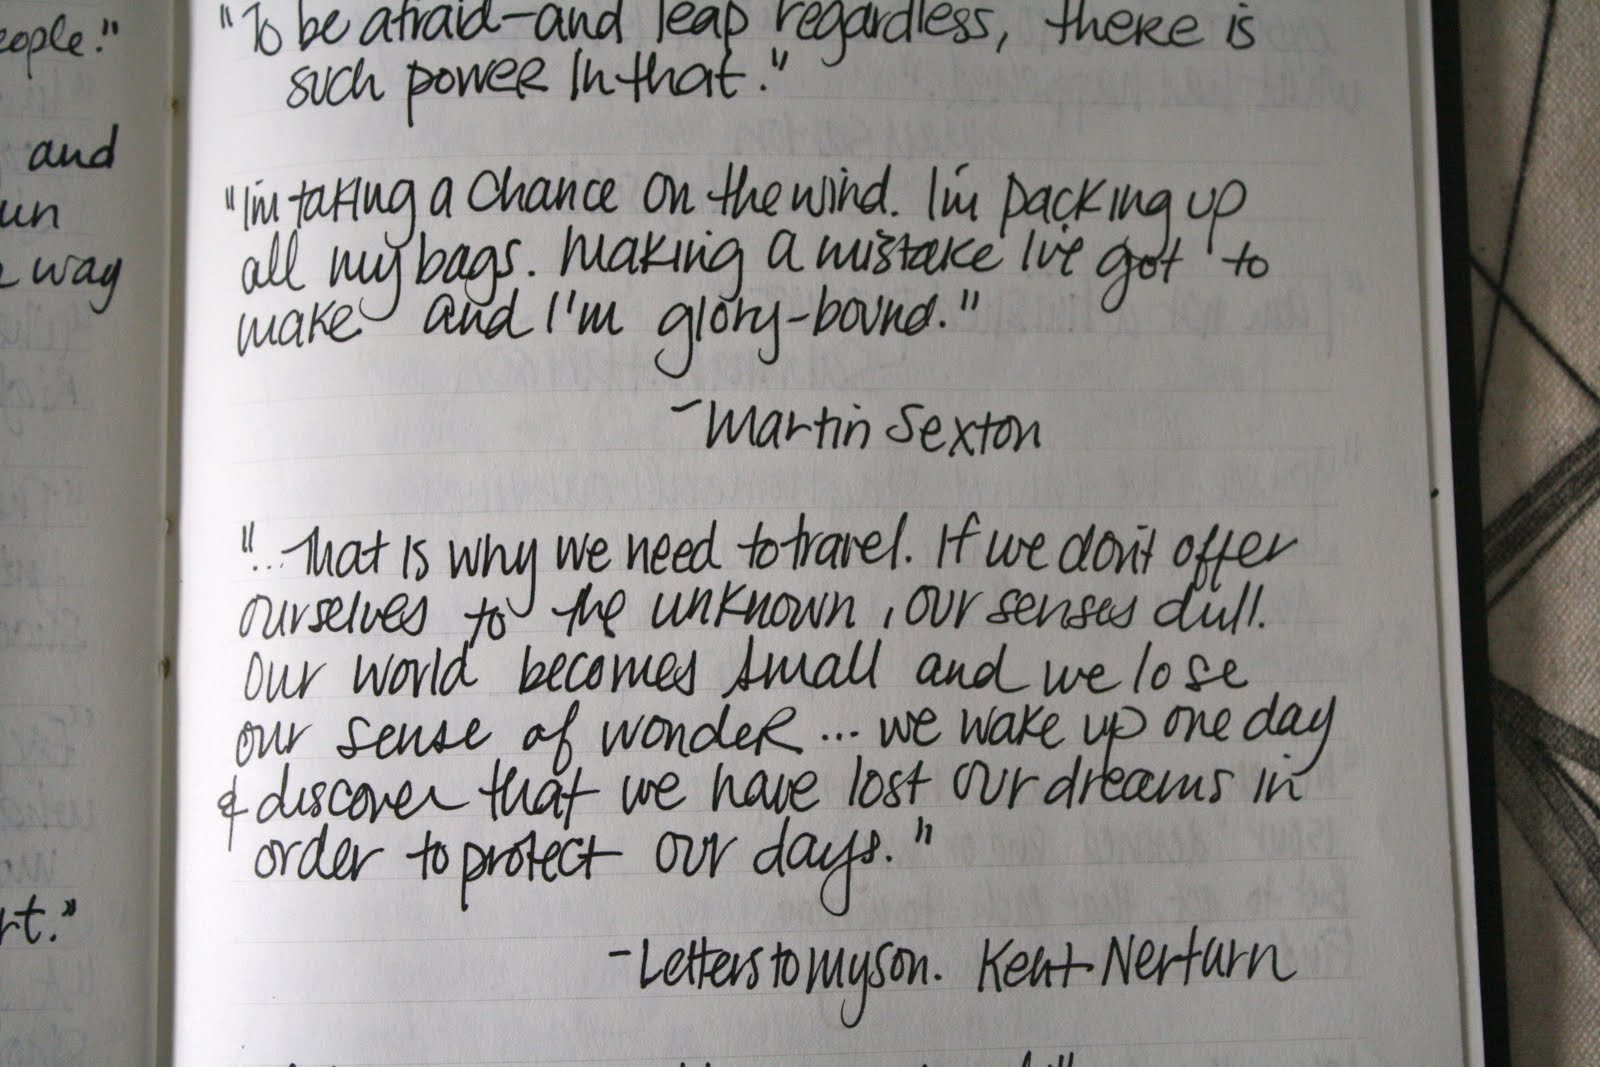 eople."
and
un
way
rt."
"To be afraid—and leap regardless, there is
such power in that."
"I'm taking a chance on the wind. I'm packing up
all my bags. making a mistake I've got to
make and I'm glory-bound."
-Martin Sexton
"...that is why we need to travel. If we don't offer
ourselves to the unknown, our senses dull.
Our world becomes small and we lose
our sense of wonder... we wake up one day
& discover that we have lost our dreams in
order to protect our days."
-Letters to my son. Kent Nerturn